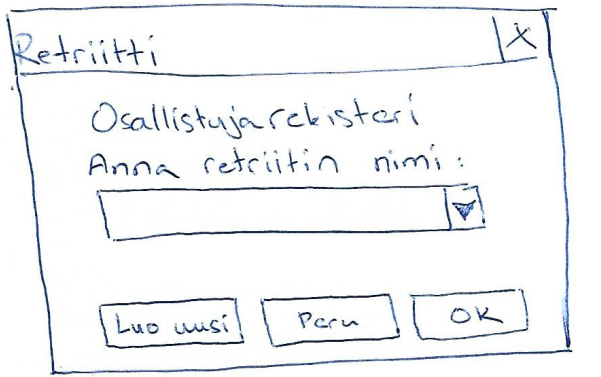 Retriitti X
Osallistujarekisteri
Anna retriitin nimi:
Luo uusi Peru OK